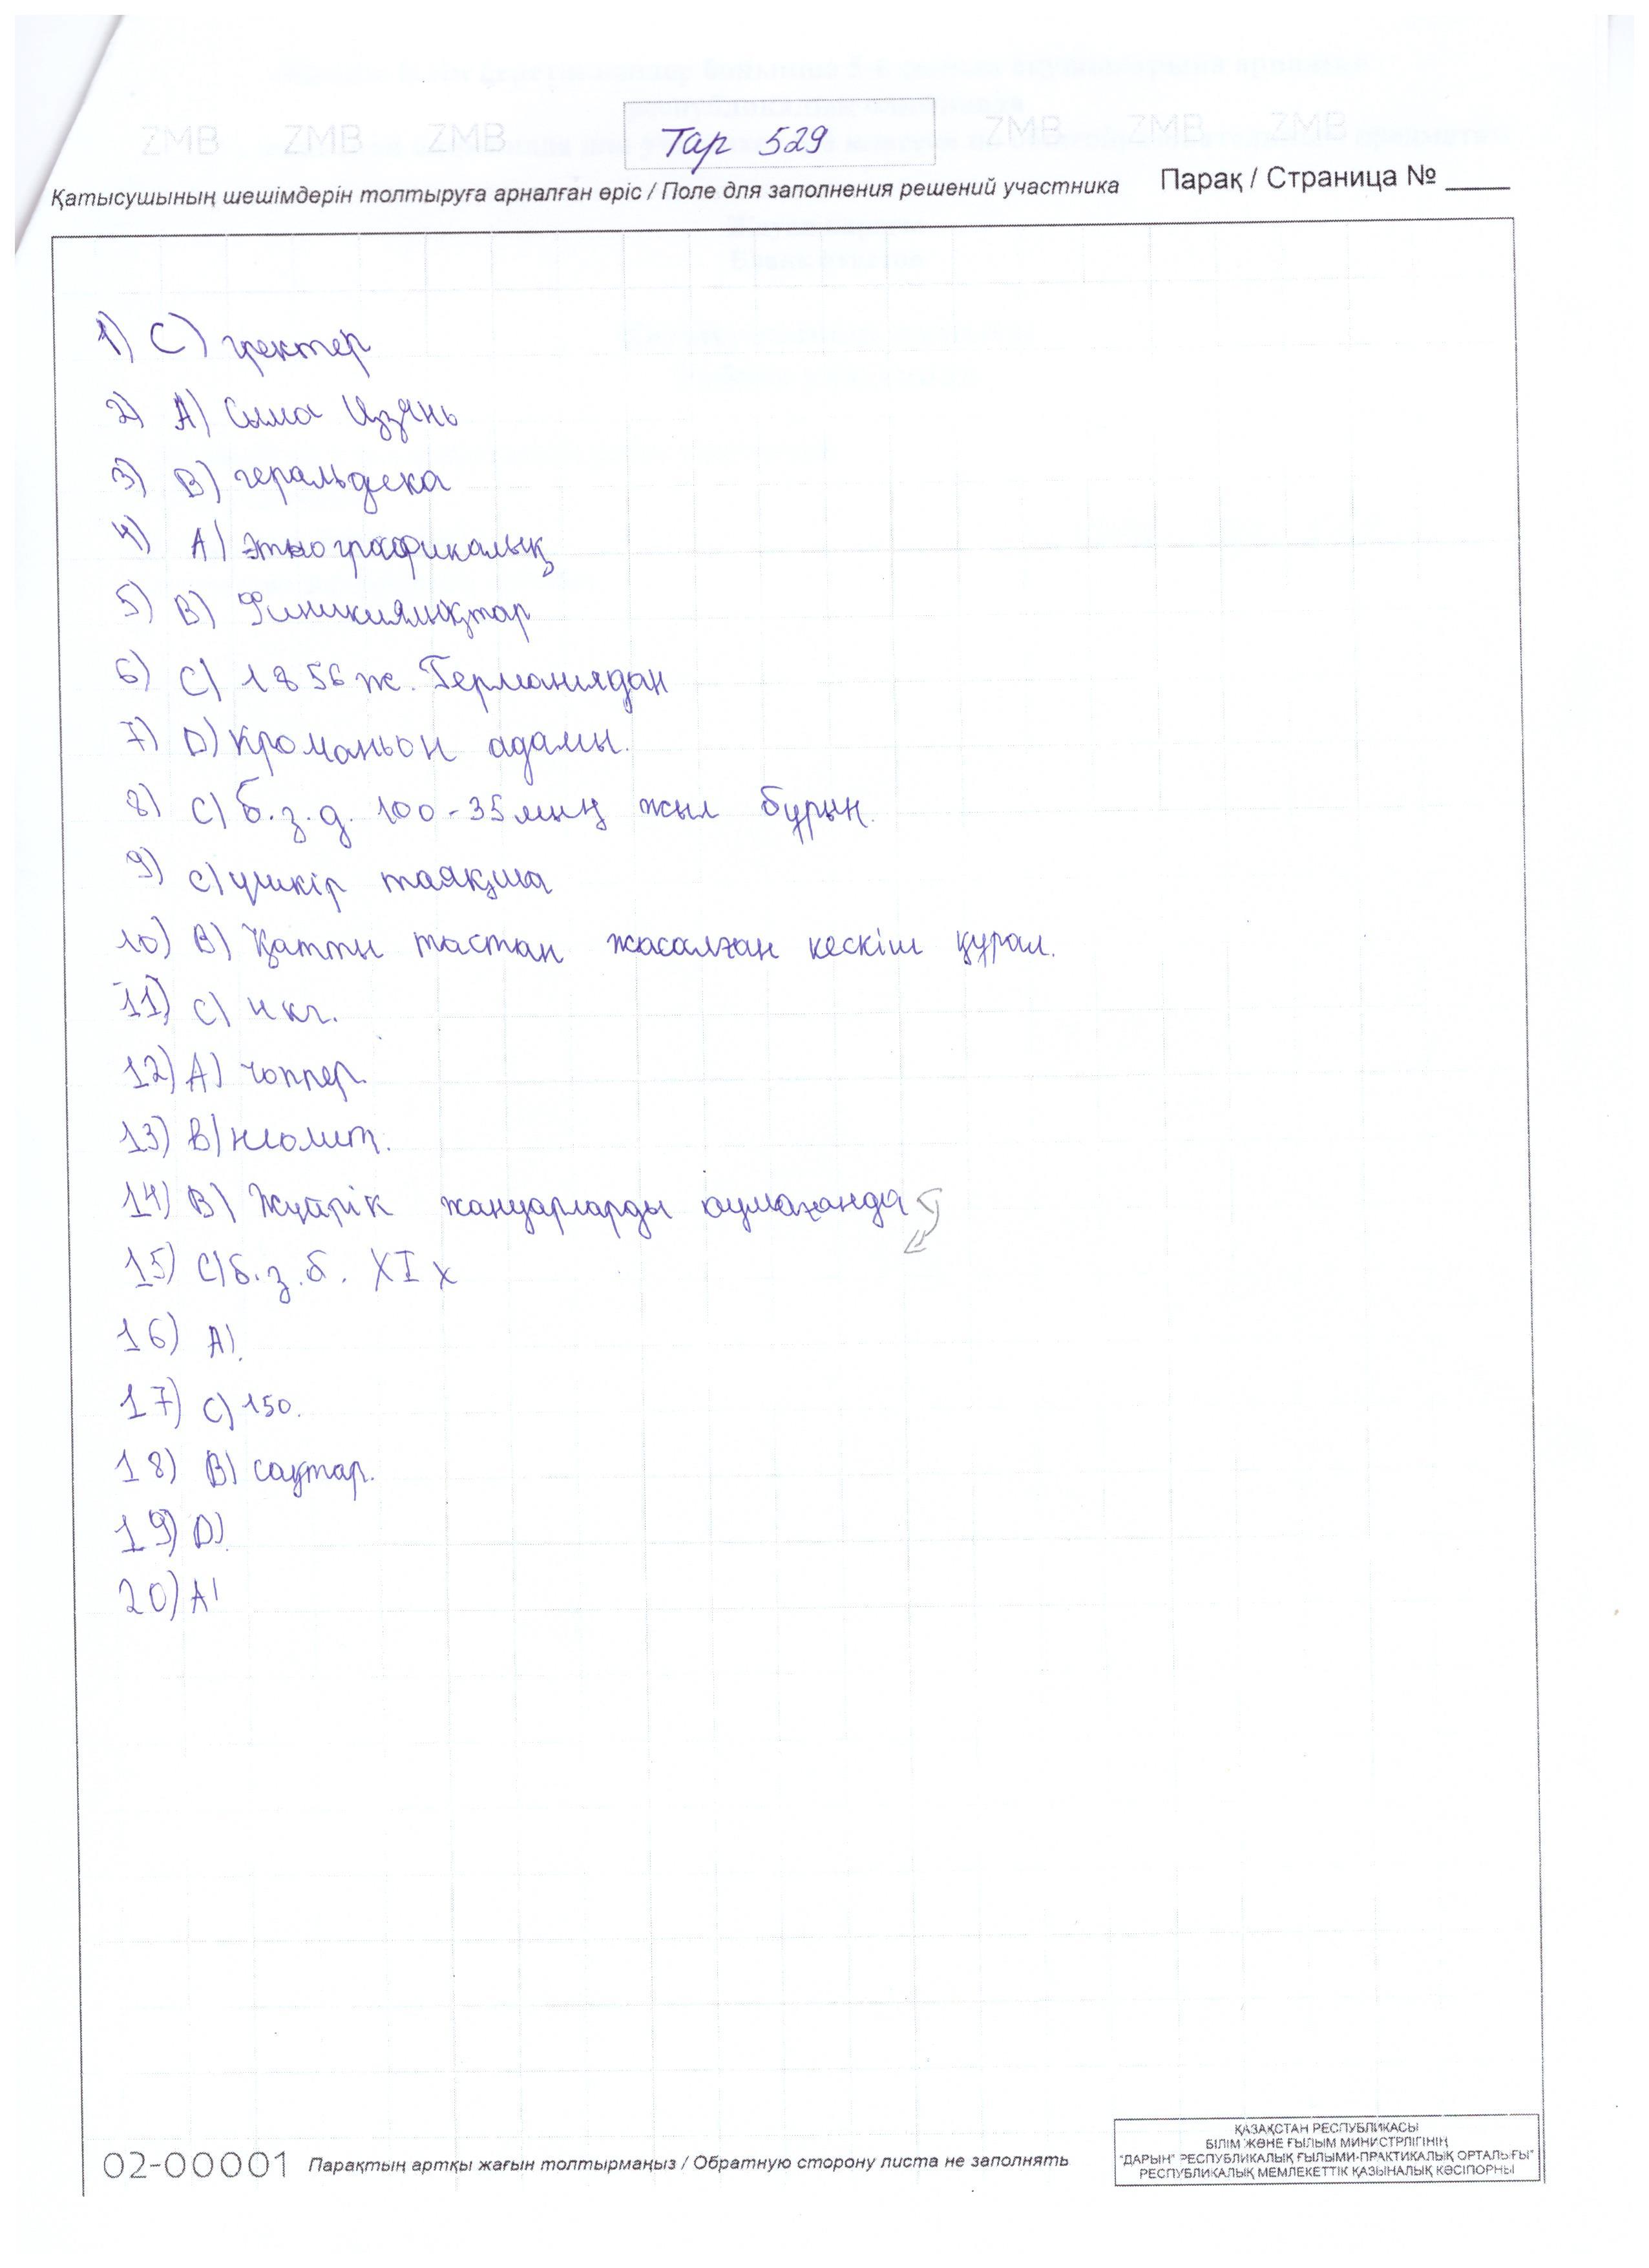 ZMB ZMB ZMB Тар 529 ZMB ZMB ZMB
Қатысушының шешімдерін толтыруға арналған өріс / Поле для заполнения решений участника Парақ / Страница № ____
1) C) гректер
2) A) Сыма Цзянь
3) B) геральдека
4) A) этнографикалық
5) B) Финикиялықтар
6) C) 1856 ж. Германиядан
7) D) Кроманьон адамы.
8) C) б.з.д. 100-35 мың жыл бұрын.
9) C) үшкір таяқша
10) B) Қатты тастан жасалған кескіш құрал.
11) C) 4 кг.
12) A) чоппер.
13) B) неолит.
14) B) Жүйрік жануарларды аулағанда
15) C) б.з.б. XIX
16) A).
17) C) 150.
18) B) сақтар.
19) D).
20) A)
02-00001 Парақтың артқы жағын толтырмаңыз / Обратную сторону листа не заполнять
ҚАЗАҚСТАН РЕСПУБЛИКАСЫ
БІЛІМ ЖӘНЕ ҒЫЛЫМ МИНИСТРЛІГІНІҢ
"ДАРЫН" РЕСПУБЛИКАЛЫҚ ҒЫЛЫМИ-ПРАКТИКАЛЫҚ ОРТАЛЫҒЫ"
РЕСПУБЛИКАЛЫҚ МЕМЛЕКЕТТІК ҚАЗЫНАЛЫҚ КӘСІПОРНЫ